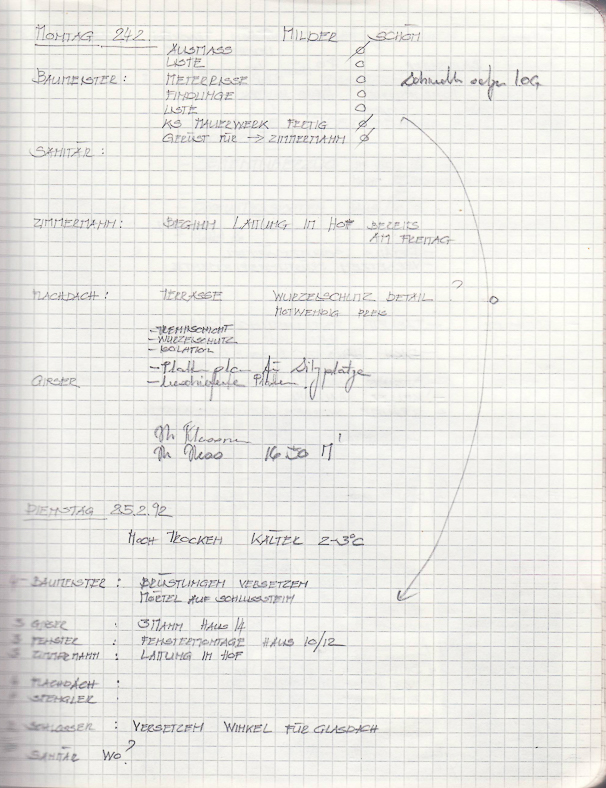 MONTAG 24.2. MILDER SCHÖN
AUSMASS
LISTE
BAUMEISTER: METERRISSE
FINDLINGE
LISTE
KS MAUERWERK FERTIG
GERÜST FÜR -> ZIMMERMANN
SANITÄR:
ZIMMERMANN: BEGINN LATTUNG IN HOF BEREITS
AM FREITAG
FLACHDACH: TERRASSE WURZELSCHUTZ DETAIL ?
NOTWENDIG PREIS
- TRENNSCHICHT
- WURZELSCHUTZ
- ISOLATION
- für Sitzplätze
GIPSER
DIENSTAG 25.2.92
NOCH TROCKEN KÄLTER 2-3°C
BAUMEISTER: BRÜSTUNGEN VERSETZEN
MÖRTEL AUF SCHLUSSSTEIN
3 GIPSER: 3 MANN HAUS 14
3 FENSTER: FENSTERMONTAGE HAUS 10/12
ZIMMERMANN: LATTUNG IN HOF
FLACHDACH:
SPENGLER:
2 SCHLOSSER: VERSETZEN WINKEL FÜR GLASDACH
SANITÄR WO?